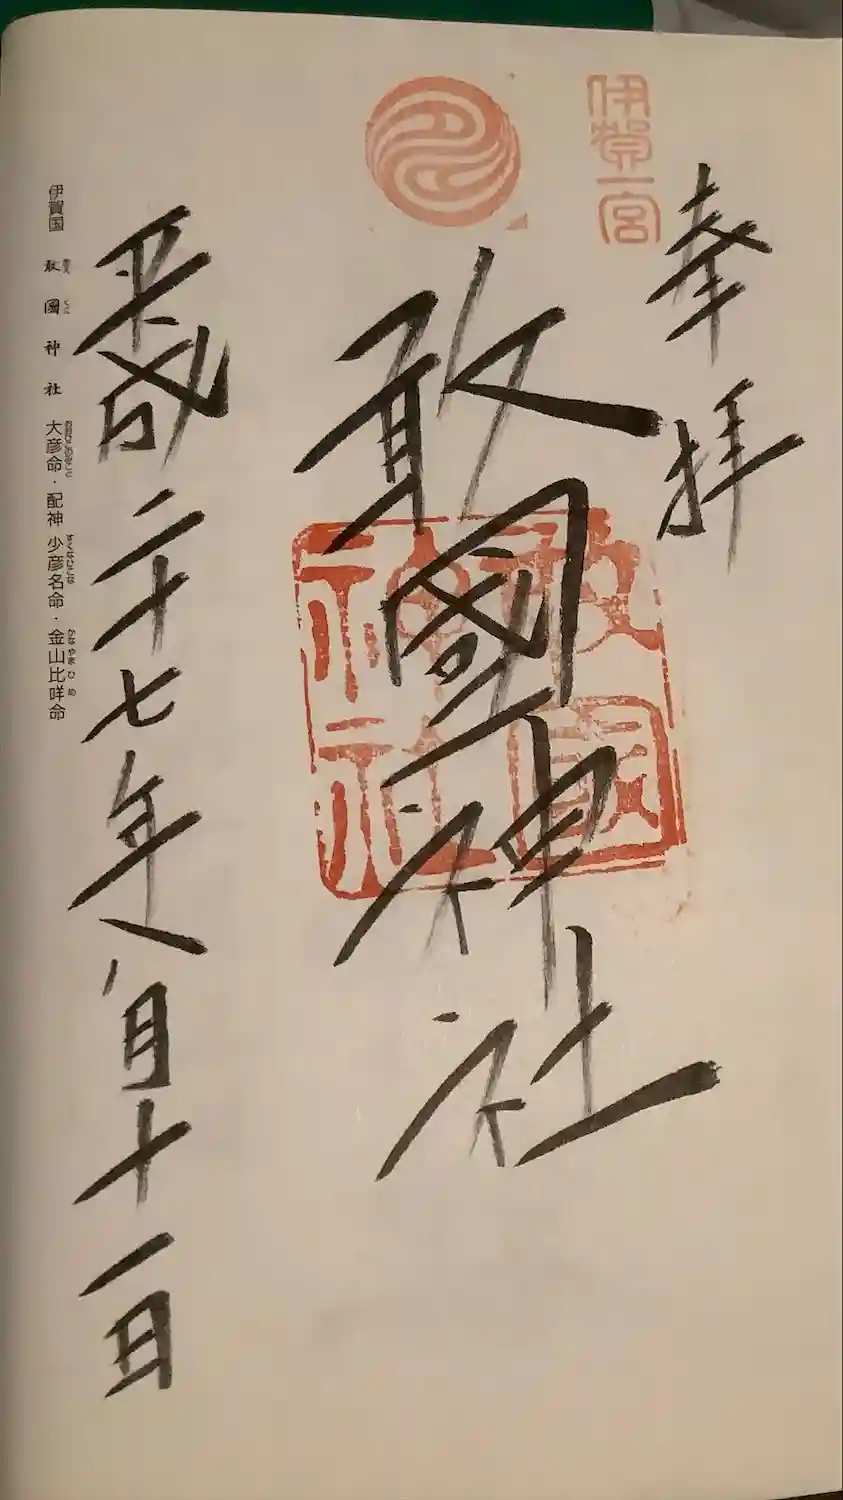 伊賀一宮
奉拝
敢國神社
敢国神社
平成二十七年八月十一日
伊賀国 敢國神社 大彦命・配神 少彦名命・金山比咩命